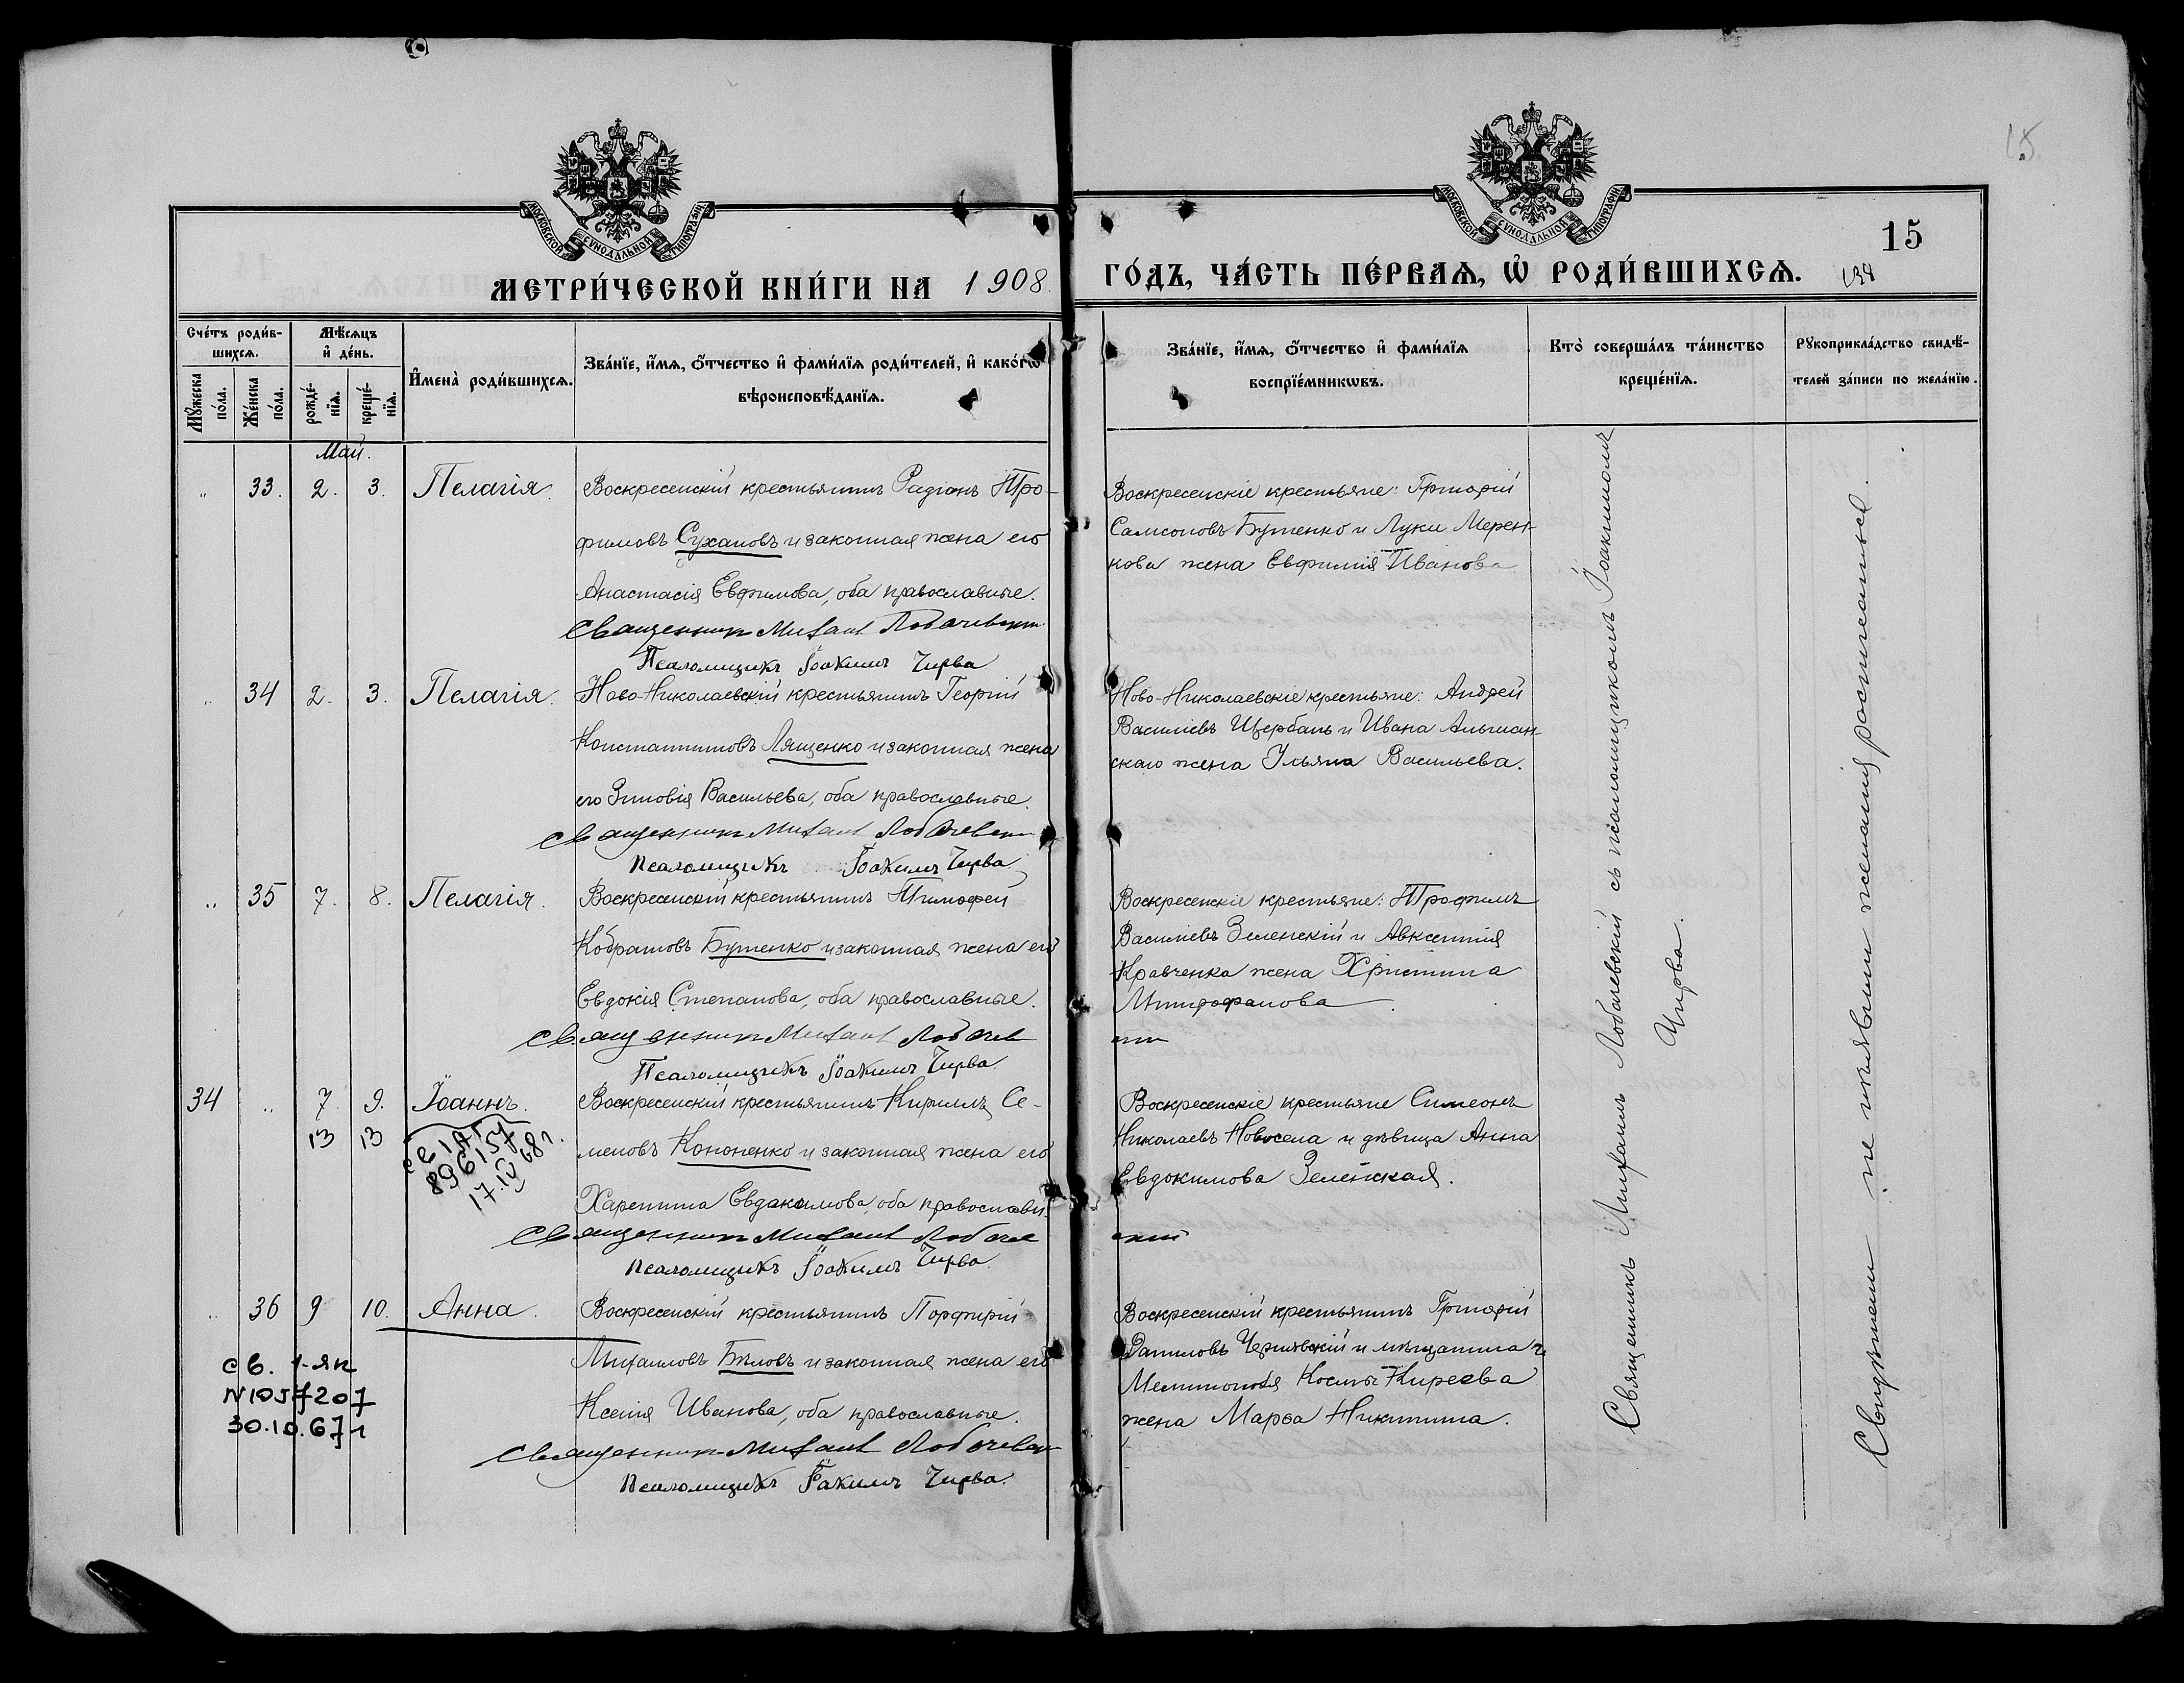 15
МОСКОВСКОЙ СУНОДАЛЬНОЙ ТИПОГРАФІИ
МОСКОВСКОЙ СУНОДАЛЬНОЙ ТИПОГРАФІИ
15
МЕТРИ́ЧЕСКОЙ КНИ́ГИ НА 1908
ГО́ДЪ, ЧА́СТЬ ПЕ́РВАѦ, Ѡ҆ РОДИ́ВШИХСѦ.
Сче́тъ роди́в-
шихсѧ.
Мꙋ́жеска по́ла.
Же́нска по́ла.
Мѣ́сѧцъ
и҆ де́нь.
рожде́-
нїѧ.
креще́-
нїѧ.
И҆мена̀ роди́вшихсѧ.
Зва́нїе, и҆́мѧ, ѻ҆́тчество и҆ фами́лїѧ роди́телей, и҆ како́гѡ
вѣроисповѣ́данїѧ.
Зва́нїе, и҆́мѧ, ѻ҆́тчество и҆ фами́лїѧ
воспрїе́мникѡвъ.
Кто̀ соверша́лъ та́инство
креще́нїѧ.
Рꙋкоприкла́дство свидѣ́-
телей за́писи по жела́нїю.
Май.
" 33. 2. 3. Пелагія.
Воскресенскій крестьянинъ Радіонъ Тро-
фимовъ Сухановъ и законная жена его
Анастасія Евфимова, оба православные.
Священник Михаил Лобачевский
Псаломщикъ Іоакимъ Чирва
Воскресенскіе крестьяне: Григорій
Самсоновъ Бутенко и Луки Мерен-
кова жена Евфимія Иванова
" 34 2. 3. Пелагія.
Ново-Николаевскій крестьянинъ Георгій
Константиновъ Лященко и законная жена
его Зиновія Васильева, оба православные.
Священник Михаил Лобачевски
Псаломщикъ Іоакимъ Чирва
Ново-Николаевскіе крестьяне: Андрей
Василіевъ Щербань и Ивана Альшан-
скаго жена Ульяна Васильева.
" 35 7. 8. Пелагія.
Воскресенскій крестьянинъ Тимофей
Кодратовъ Бутенко и законная жена его
Евдокія Степанова, оба православные.
Священник Михаил Лобачев
Псаломщикъ Іоакимъ Чирва
Воскресенскіе крестьяне: Трофимъ
Василіевъ Зеленскій и Авксентія
Кравченка жена Христина
Митрофанова.
34 " 7. 9. Іоаннъ.
13 13
896157
17.IV 68г.
Воскресенскій крестьянинъ Кириллъ Се-
меновъ Кононенко и законная жена его
Харитина Евдокимова, оба православн.
Священник Михаил Лобаче
ский
Псаломщикъ Іоакимъ Чирва
Воскресенскіе крестьяне Симеонъ
Николаевъ Новосела и дѣвица Анна
Евдокимова Зеленская.
" 36 9 10. Анна.
св. 1-яп
N1057207
30.10.67г
Воскресенскій крестьянинъ Порфирій
Михаиловъ Бѣловъ и законная жена его
Ксенія Иванова, оба православные.
Священник Михаил Лобачевск
Псаломщикъ Іоакимъ Чирва.
Воскресенскій крестьянинъ Григорій
Даниловъ Чернявскій и мѣщанина г.
Мелитополя Космы Киреева
жена Марѳа Никитина.
Священникъ Михаилъ Лобачевскій съ псаломщикомъ Іоакимомъ
Чирва.
Свидѣтели не изъявили желанія росписаться.